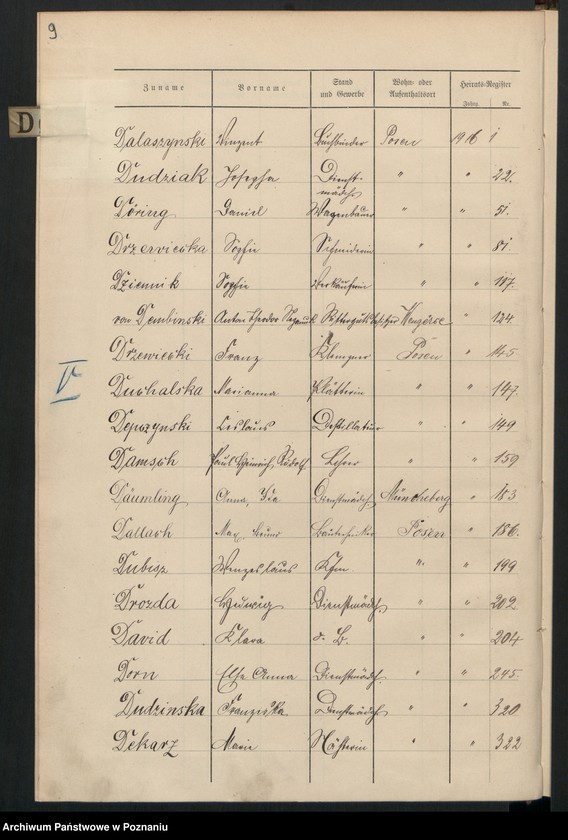 9
Zuname Vorname Stand und Gewerbe Wohn- oder Aufenthaltsort Heirats-Register
Jahrg. Nr.
D
Dalaszynski Vinzent Buchbinder Posen 1916 1
Dudziak Josepha Dienstmädch. " " 22.
Döring Daniel Wagenbauer " " 51.
Drzewiecka Sophie Schneiderin " " 81
Dziennik Sophie Verkäuferin " " 117.
von Dembinski Anton Theodor Rittergutsbesitzer " 124.
Drzewiecki Franz Klempner Posen " 145
V
Duchalska Marianna Plätterin " " 147
Depczynski Ceslaus Destillateur " " 149
Damsch Paul Heinrich, Rudolf Lehrer " " 159
Däumling Anna, Ida Dienstmädch. Müncheberg " 183
Dallach Max, Bruno Bautechniker Posen " 186.
Dubisz Wenzeslaus Kfm. " " 199
Drozda Hedwig Dienstmädch. " " 202
David Klara o. B. " " 204
Dorn Else Anna Dienstmädch. " " 245.
Dudzinska Franziska Dienstmädch. " " 320
Dekarz Marie Näherin " " 322
Archiwum Państwowe w Poznaniu